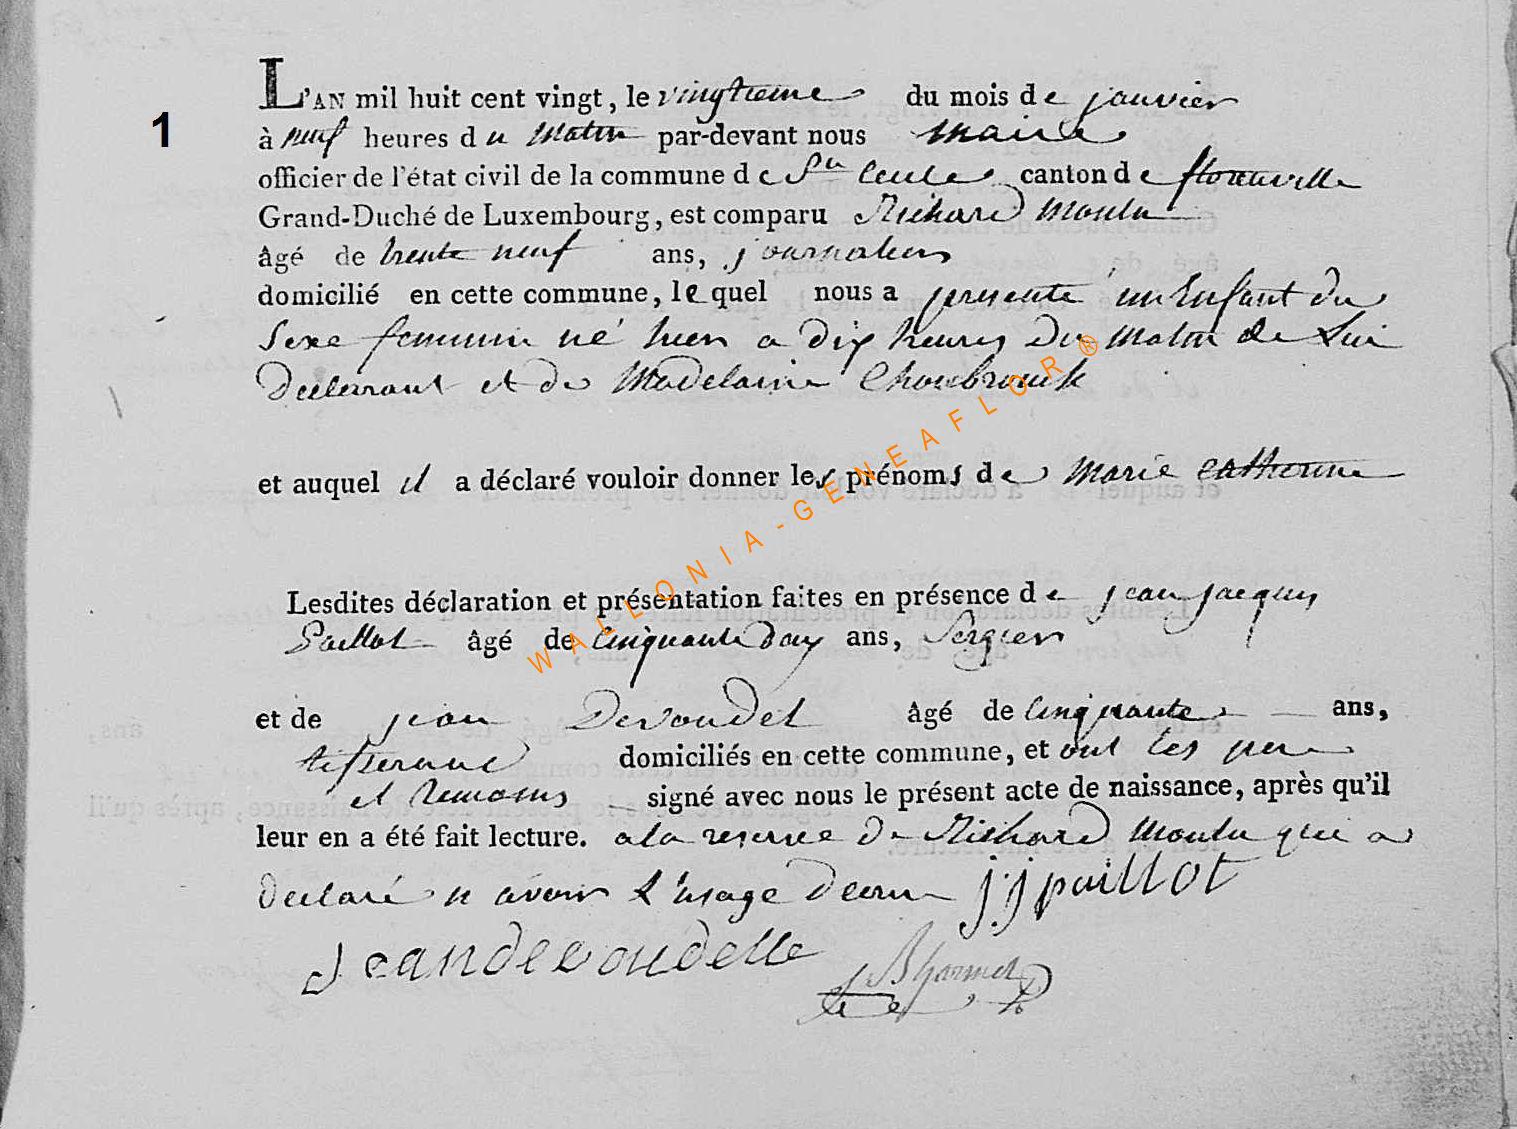 1
L'AN mil huit cent vingt, le vingtieme du mois de janvier
à neuf heures du Matin par-devant nous Maire
officier de l'état civil de la commune de Ste Cecile canton de florenville
Grand-Duché de Luxembourg, est comparu Richard Moulu
âgé de trente neuf ans, journalier
domicilié en cette commune, lequel nous a presenté un Enfant du
Sexe feminin né hier a dix heures Du Matin de Lui
Declarant et de Madelaine
et auquel il a déclaré vouloir donner les prénoms de Marie catherine
Lesdites déclaration et présentation faites en présence de jean jacques
Paillot âgé de Cinquante Deux ans, Sergier
et de jean Devoudel âgé de Cinquante ans,
tisserand domiciliés en cette commune, et ont les pere
et temoins signé avec nous le présent acte de naissance, après qu'il
leur en a été fait lecture. a la reserve De Richard Moulu qui a
declaré n avoir L'usage Decrire j.j paillot
Jean devoudelle
WALLONIA-GENEAFLOR®